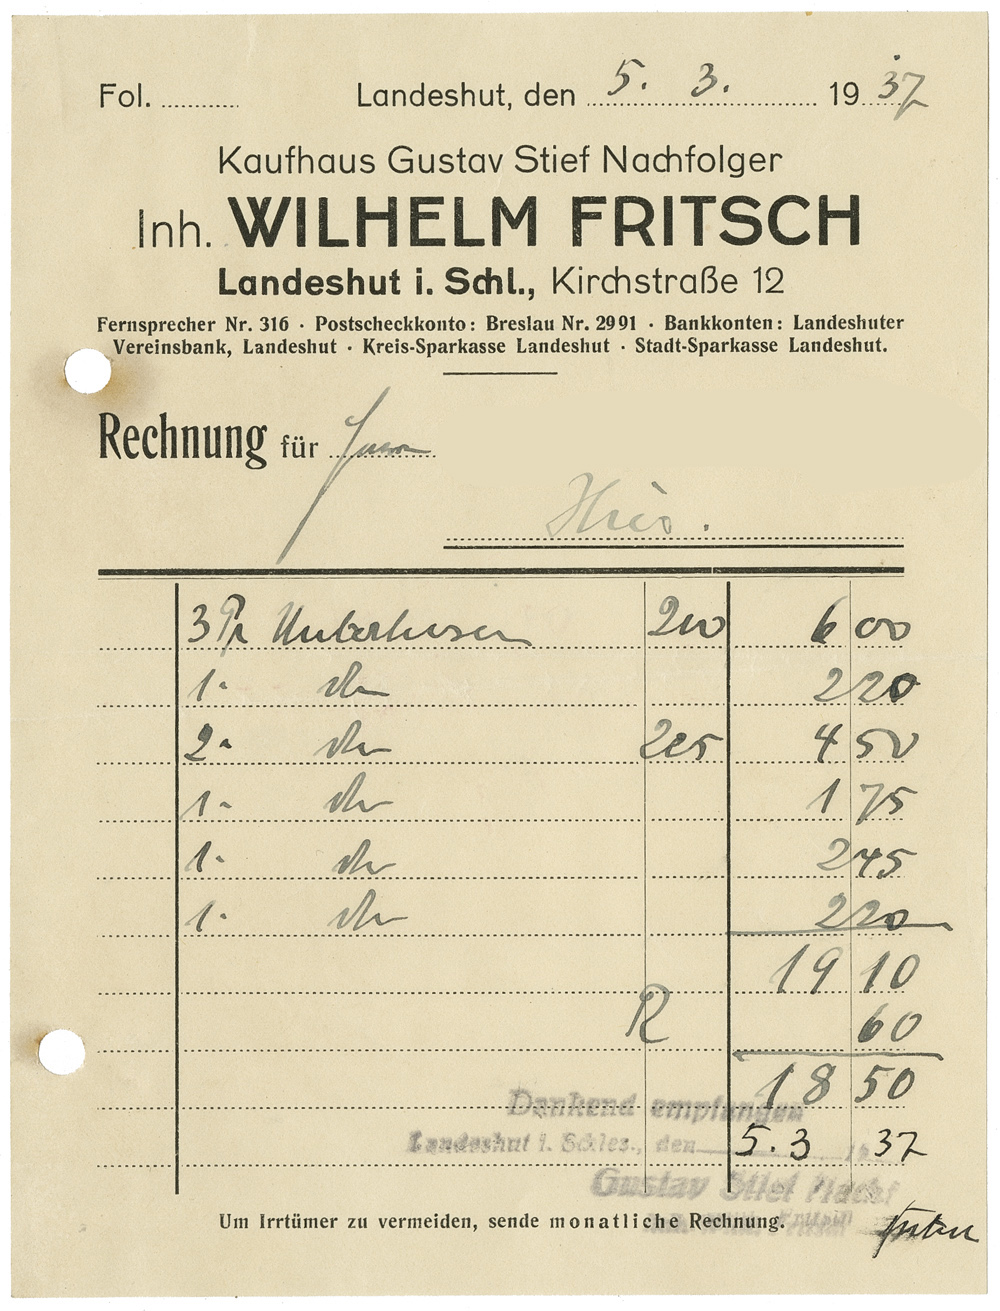 Fol. ............ Landeshut, den 5. 3. 1937
Kaufhaus Gustav Stief Nachfolger
Inh. WILHELM FRITSCH
Landeshut i. Schl., Kirchstraße 12
Fernsprecher Nr. 316 · Postscheckkonto: Breslau Nr. 2991 · Bankkonten: Landeshuter
Vereinsbank, Landeshut · Kreis-Sparkasse Landeshut · Stadt-Sparkasse Landeshut.
Rechnung für
Hier.
3 Pr Unterhosen 200 6 00
1 " 2 20
2 " 225 4 50
1 " 1 75
1 " 2 45
1 " 2 20
19 10
R 60
18 50
Dankend empfangen
Landeshut i. Schles., den 5. 3 37
Gustav Stief Nachf
Um Irrtümer zu vermeiden, sende monatliche Rechnung.